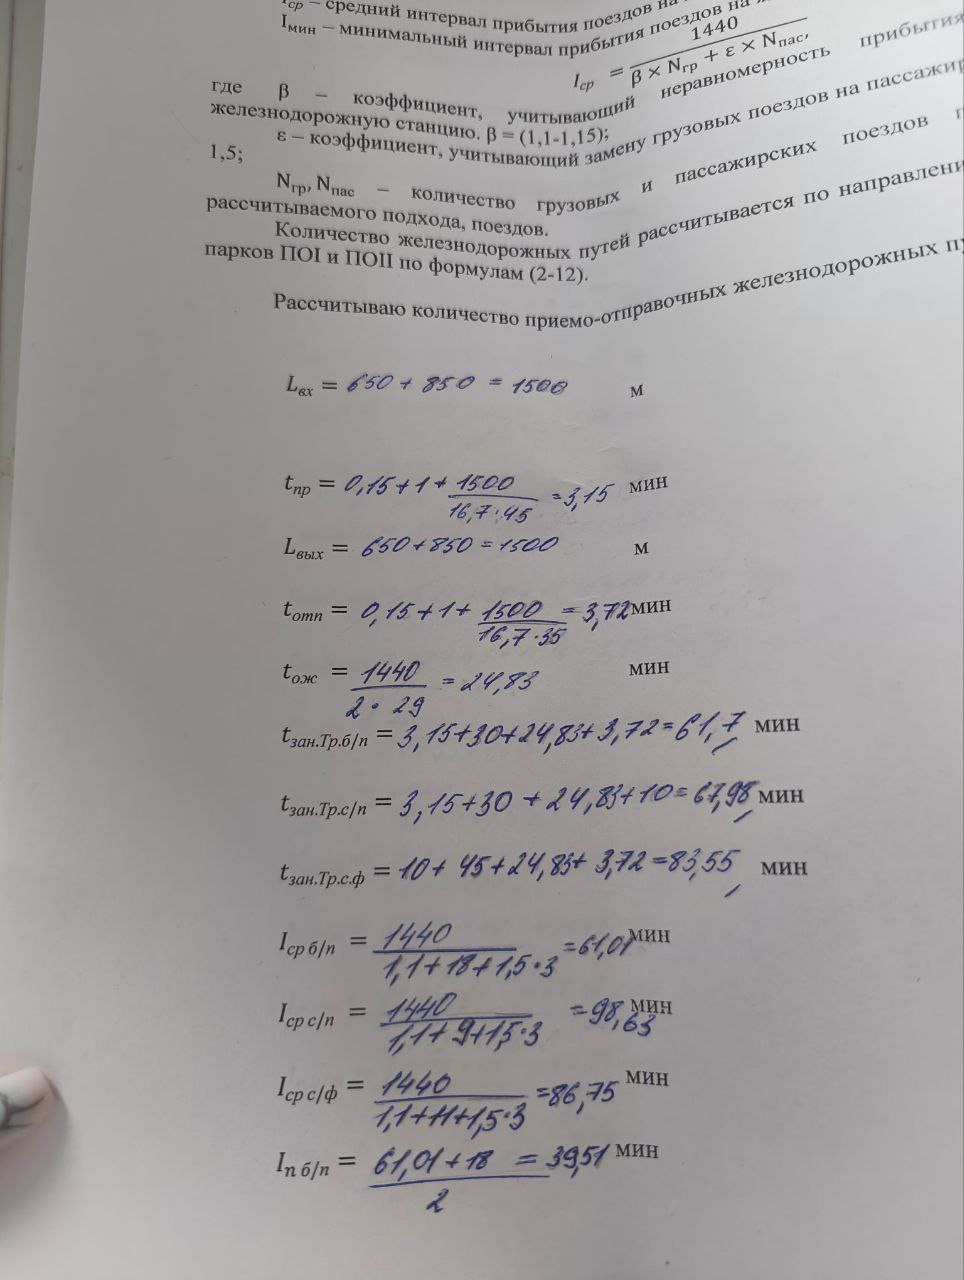 I_ср – средний интервал прибытия поездов на
I_мин – минимальный интервал прибытия поездов на
I_ср = 1440 / (β × N_гр + ε × N_пас,
где β – коэффициент, учитывающий неравномерность прибытия
железнодорожную станцию. β = (1,1-1,15);
ε – коэффициент, учитывающий замену грузовых поездов на пассажир
1,5;
N_гр, N_пас – количество грузовых и пассажирских поездов
рассчитываемого подхода, поездов.
Количество железнодорожных путей рассчитывается по направлени
парков ПОI и ПОII по формулам (2-12).
Рассчитываю количество приемо-отправочных железнодорожных пу
L_вх = 650 + 850 = 1500 м
t_пр = 0,15+1+ 1500 / 16,7·45 = 3,15 мин
L_вых = 650+850 = 1500 м
t_отп = 0,15+1+ 1500 / 16,7·35 = 3,72 мин
t_ож = 1440 / 2·29 = 24,83 мин
t_зан.Тр.б/п = 3,15+30+24,83+3,72=61,7 мин
t_зан.Тр.с/п = 3,15+30+24,83+10=67,98 мин
t_зан.Тр.с.ф = 10+45+24,83+3,72=83,55 мин
I_ср б/п = 1440 / 1,1+18+1,5·3 =61,01 мин
I_ср с/п = 1440 / 1,1+9+1,5·3 =98,63 мин
I_ср с/ф = 1440 / 1,1+11+1,5·3 =86,75 мин
I_п б/п = 61,01+18 / 2 = 39,51 мин